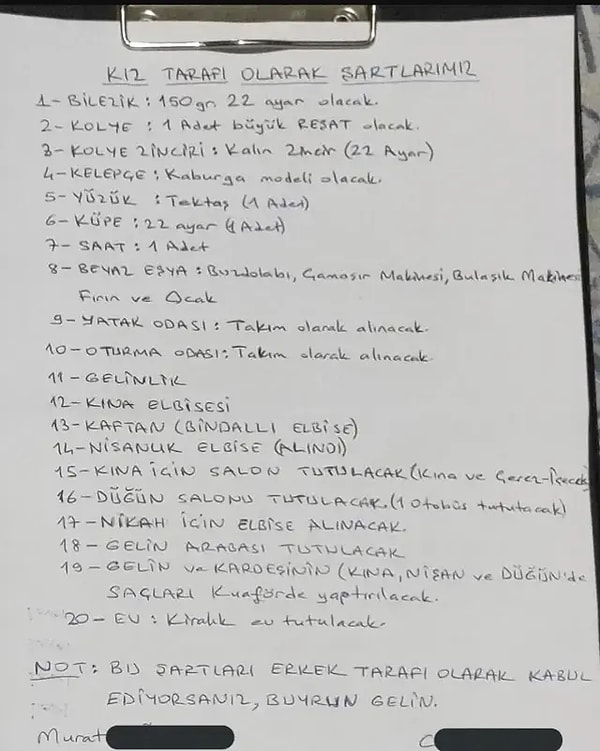 KIZ TARAFI OLARAK ŞARTLARIMIZ
1- BİLEZİK : 150 gr. 22 ayar olacak.
2- KOLYE : 1 Adet büyük REŞAT olacak.
3- KOLYE ZİNCİRİ : Kalın Zincir (22 Ayar)
4- KELEPÇE : Kaburga modeli olacak.
5- YÜZÜK : Tektaş (1 Adet)
6- KÜPE : 22 ayar (1 Adet)
7- SAAT : 1 Adet
8- BEYAZ EŞYA : Buzdolabı, Çamaşır Makinesi, Bulaşık Makinesi
Fırın ve Ocak
9- YATAK ODASI : Takım olarak alınacak.
10- OTURMA ODASI : Takım olarak alınacak.
11- GELİNLİK
12- KINA ELBİSESİ
13- KAFTAN (BİNDALLI ELBİSE)
14- NİŞANLIK ELBİSE (ALINDI)
15- KINA İÇİN SALON TUTULACAK (Kına ve Çerez-İçecek)
16- DÜĞÜN SALONU TUTULACAK. (1 Otobüs tutulacak)
17- NİKAH İÇİN ELBİSE ALINACAK.
18- GELİN ARABASI TUTULACAK
19- GELİN ve KARDEŞİNİN (KINA, NİŞAN ve DÜĞÜN'de
SAÇLARI Kuaförde yaptırılacak.
20- EV : Kiralık ev tutulacak.
NOT : BU ŞARTLARI ERKEK TARAFI OLARAK KABUL
EDİYORSANIZ, BUYRUN GELİN.
Murat C